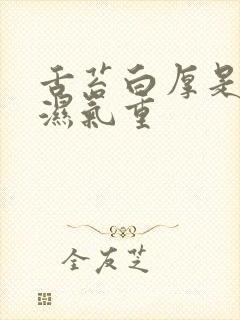 舌苔白厚是
濕氣重
全友芝